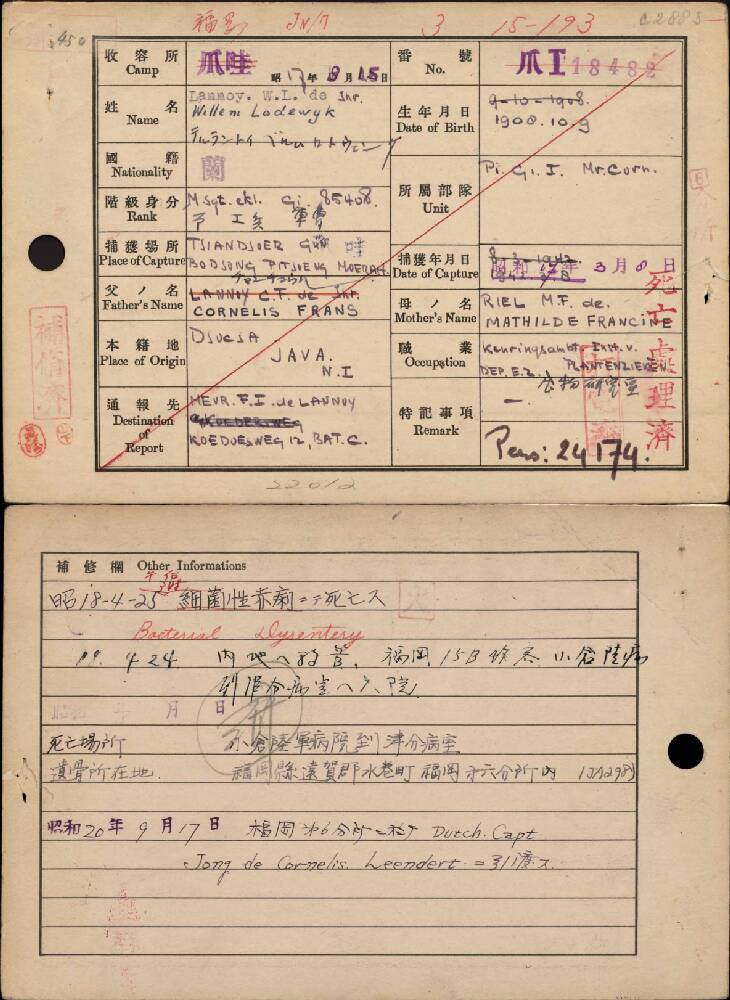 福岡 JN/7 3 15-193 C2883
450
收容所 Camp 爪哇 昭17年8月15日
番號 No. 爪I 18482
姓名 Name Lannoy. W.L. de Jhr.
Willem Lodewyk
生年月日 Date of Birth 9-10-1908.
1908.10.9
國籍 Nationality 蘭
階級身分 Rank M.sgt. ekl. Gi. 85408.
所屬部隊 Unit Pi. G. I. Mr.Corn.
捕獲場所 Place of Capture TSIANDSOER
BODSONG PITJOENG MOERAH
捕獲年月日 Date of Capture 8-3-1942
昭和17年3月8日
父ノ名 Father's Name LANNOY C.F. de Jhr.
CORNELIS FRANS
母ノ名 Mother's Name RIEL M.F. de.
MATHILDE FRANCINE
本籍地 Place of Origin DJOCJA
JAVA.
N.I
職業 Occupation Keuringsambt. Inst. v.
DEP. E.Z. PLANTENZIEKEN
通報先 Destination of Report MEVR. F.I. de LANNOY
KOEDOESWEG 12, BAT. C.
特記事項 Remark 一.
Pers: 24174.
死亡處理濟
22012
補修欄 Other Informations
昭18-4-25 細菌性赤痢ニテ死亡ス
Bacterial Dysentery
4 24 內地へ移管. 福岡 15B 小倉陸病
到津分病室へ入院
昭和 年 月 日
死亡場所 小倉陸軍病院到津分病室
遺骨所在地. 福岡縣遠賀郡水巻町 福岡才六分所內
昭和20年9月17日 福岡才6分所ニ於テ Dutch. Capt
Jong de Cornelis. Leendert. ニ引渡ス.